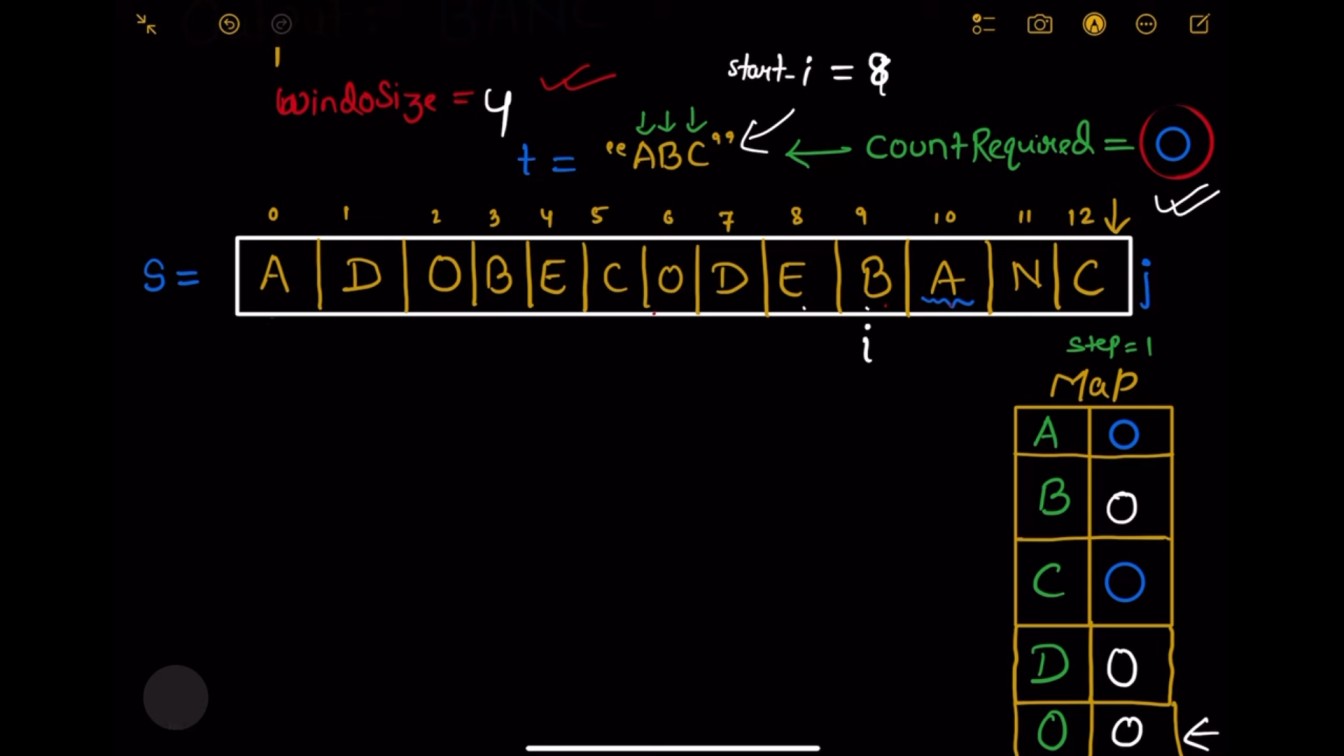 start_i = 8
windoSize = 4
t = "ABC" ← countRequired = 0
0 1 2 3 4 5 6 7 8 9 10 11 12
S = A D O B E C O D E B A N C j
i
step=1
Map
A 0
B 0
C 0
D 0
O 0